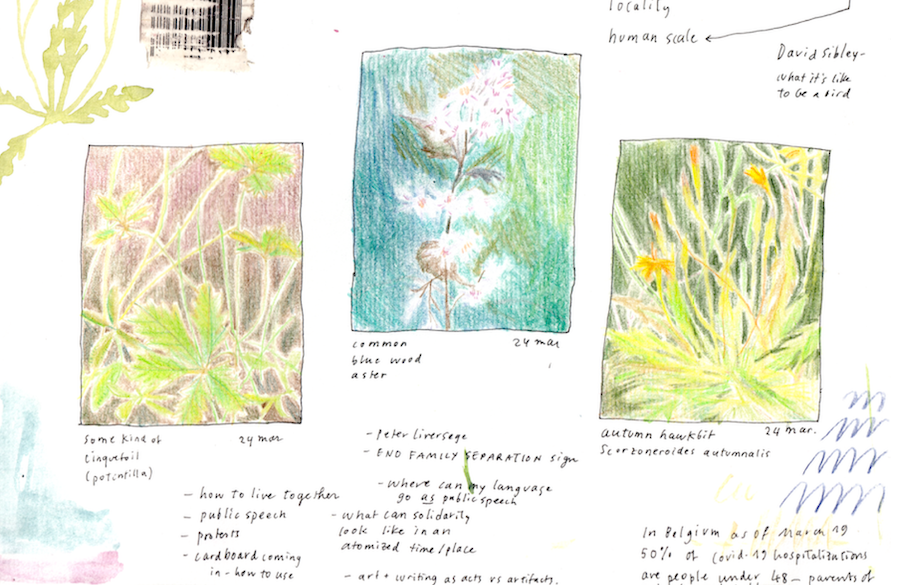 locality
human scale
David Sibley-
what it's like
to be a bird
common
blue wood
aster
24 mar
some kind of
cinquefoil
(potentilla)
24 mar
autumn hawkbit
24 mar.
Scorzoneroides autumnalis
- Peter Liversege
- END FAMILY SEPARATION sign
- where can my language
go as public speech
- what can solidarity
look like in an
atomized time/place
- art + writing as acts vs artifacts.
- how to live together
- public speech
- protests
- cardboard coming
in - how to use
In Belgium as of March 19
50% of Covid-19 hospitalizations
are people under 48 - parents of